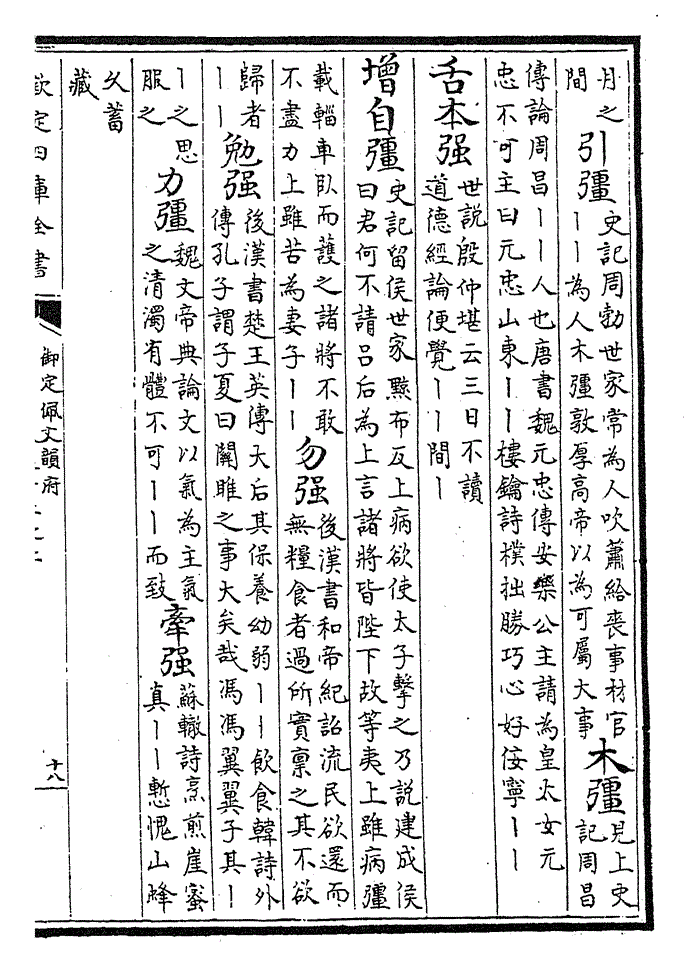 月之
間
引彊
史記周勃世家常為人吹簫給喪事材官
丨丨為人木彊敦厚高帝以為可屬大事
木彊
見上史
記周昌
傳論周昌丨丨人也唐書魏元忠傳安樂公主請為皇太女元
忠不可主曰元忠山東丨丨樓鑰詩樸拙勝巧心好佞寧丨丨
舌本强
世説殷仲堪云三日不讀
道德經論便覺丨丨間丨
增自彊
史記留侯世家黥布反上病欲使太子擊之乃説建成侯
曰君何不請吕后為上言諸將皆陛下故等夷上雖病彊
載輜車卧而護之諸將不敢
不盡力上雖苦為妻子丨丨
勿强
後漢書和帝紀詔流民欲還而
無糧食者過所實稟之其不欲
歸者
丨丨
勉强
後漢書楚王英傳大后其保養幼弱丨丨飲食韓詩外
傳孔子謂子夏曰關雎之事大矣哉馮馮翼翼子其丨
丨之思
服之
力彊
魏文帝典論文以氣為主氣
之清濁有體不可丨丨而致
牽强
蘇轍詩烹煎崖蜜
真丨丨慙愧山蜂
久蓄
藏
欽定四庫全書
御定佩文韻府
十八